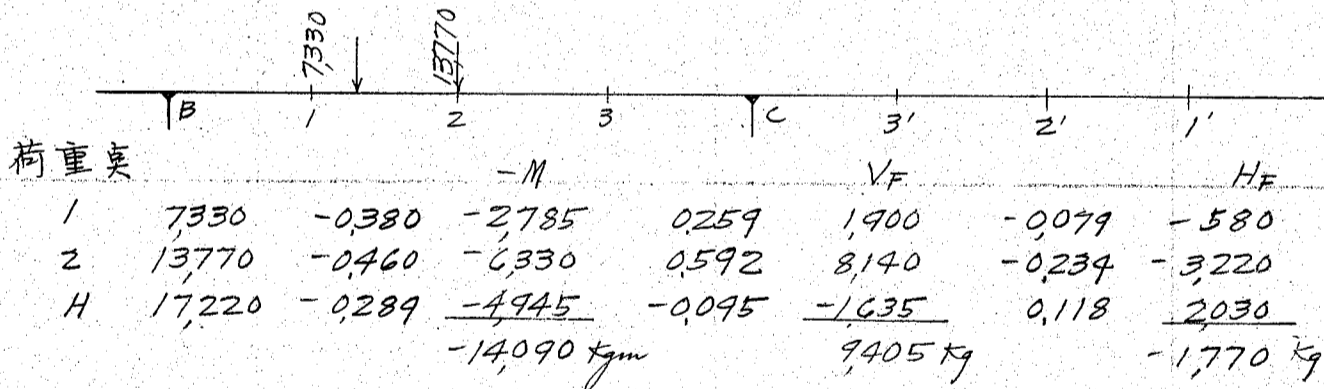 7,330 13,770
B 1 2 3 C 3' 2' 1'
荷重点
-M VF HF
1 7,330 -0.380 -2,785 0.259 1,900 -0.079 -580
2 13,770 -0.460 -6,330 0.592 8,140 -0.234 -3,220
H 17,220 -0.289 -4,945 -0.095 -1,635 0.118 2,030
-14,090 kgm 9,405 kg -1,770 kg